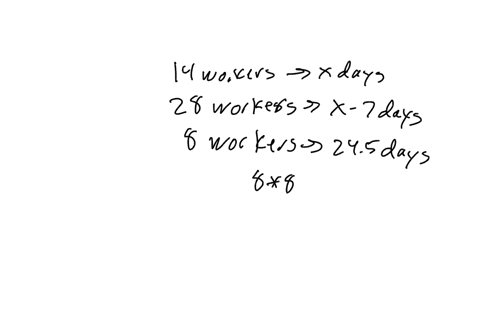 14 workers → x days
28 workers → x - 7 days
8 workers → 24.5 days
8*8